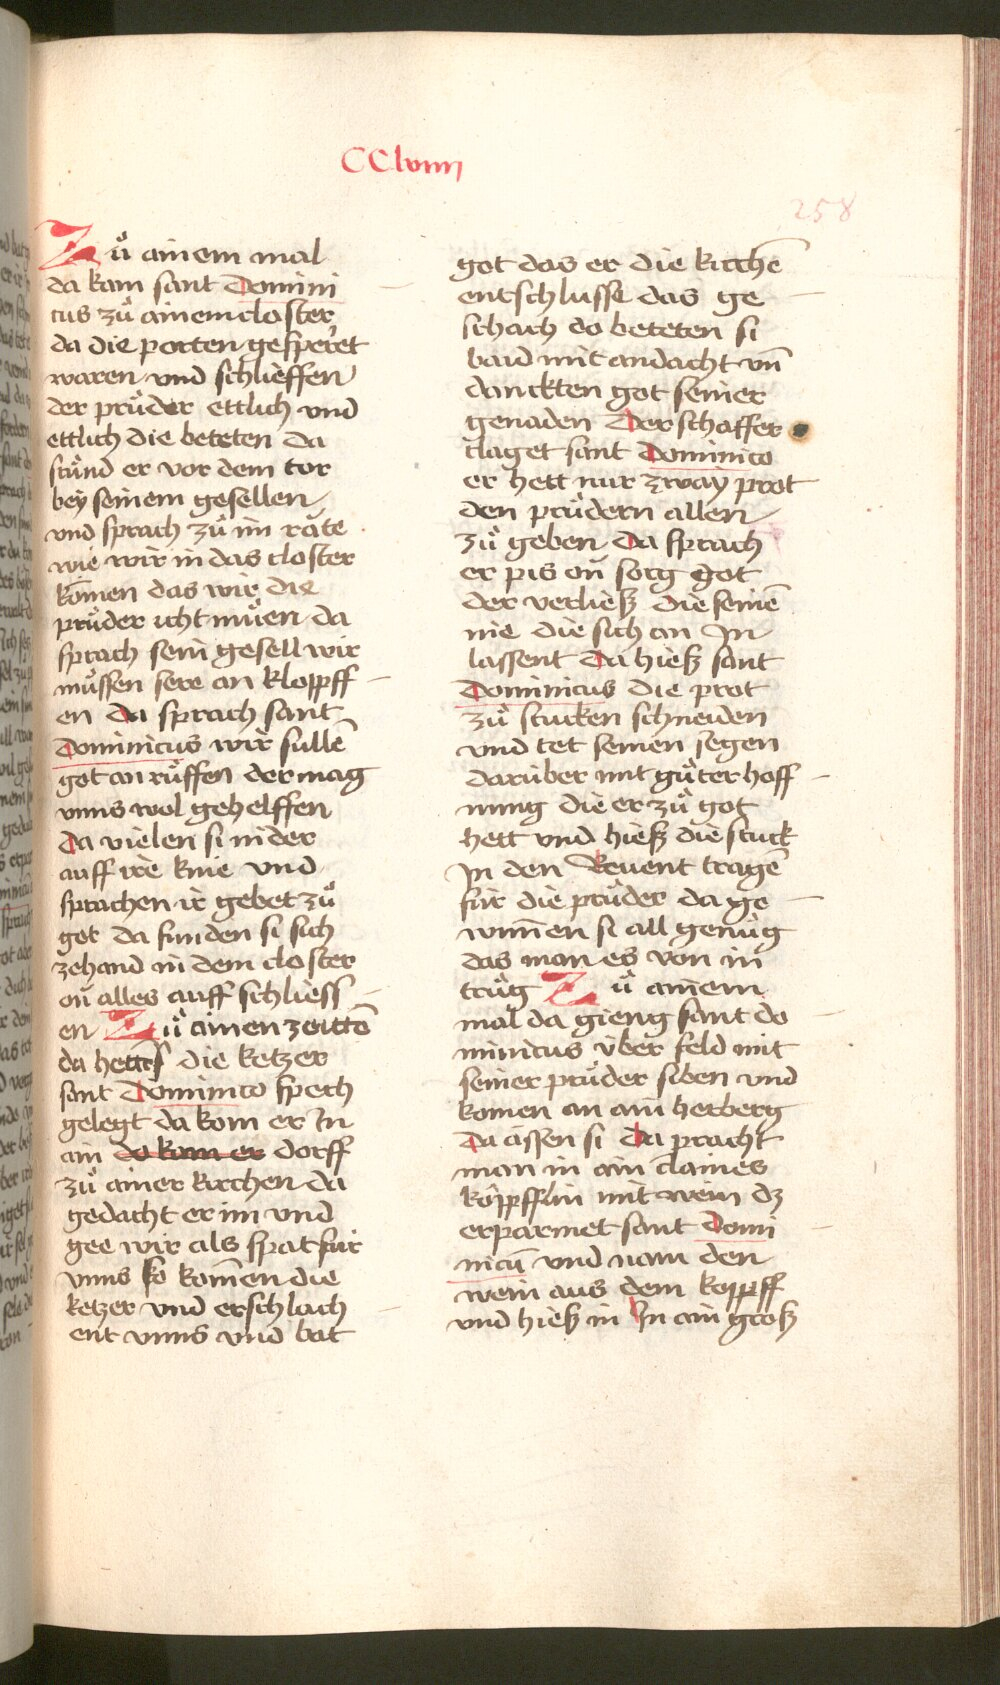 CClviiij
258
Zů ainem mal
da kam sant Domini
cus zů ainem closter
da die porten gesperet
waren und schlieffen
der průder ettlich und
ettlich die beteten da
stůnd er vor dem tor
bey seinem gesellen
und sprach zů im räte
wie wir in das closter
komen das wir die
průder icht můen da
sprach sein gesell wir
můssen sere an klopff
en da sprach sant
Dominicus wir sullē
got an růffen der mag
unns wol gehelffen
da vielen si nider
auff ire knie und
sprachen ir gebet zů
got da funden si sich
zehand in dem closter
on̄ alles auff schliess
en Zů ainen zeittē
da hetten die ketzer
sant Dominico spech
gelegt da kom er In
ain do kam er dorff
zů ainer kirchen da
gedacht er im und
gee wir als spat fur
unns so komen die
ketzer und erschlach
ent unns und bat
got das er die kirchē
entschlusse das ge
schach do beteten si
baid mit andacht un̄
danckten got seiner
genaden Der schaffer
claget sant Dominico
er hett nur zway prot
den průdern allen
zů geben da sprach
er pis on̄ sorg got
der verließ die seinē
nie die sich an In
lassent da hieß sant
Dominicus die prot
zů stucken schneiden
und tet seinen segen
darüber mit gůter hoff
nung die er zů got
hett und hieß die stuck
In den Revent tragē
für die průder da ge
wunnen si all genůg
das man es von in
trůg Zů ainem
mal da gieng sant do
minicus über feld mit
seiner průder siben und
komen an ain herberg
da assen si da pracht
man in ain claines
köpfflin mit wein dz
erparmet sant Domi
nicū und nam den
wein aus dem kopff
und hieß in In ain groß